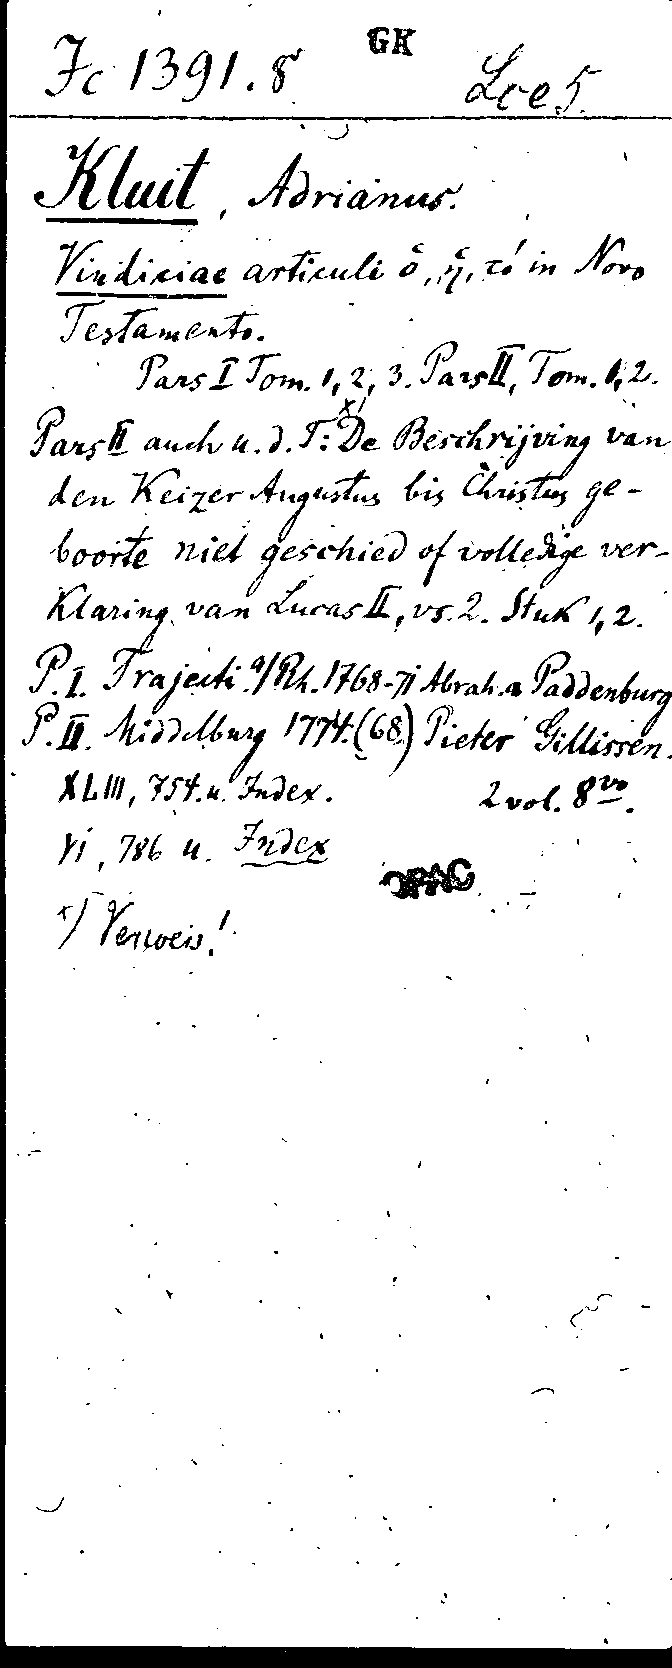 GK
Fc 1391.8 Lce 5.
Kluit, Adrianus.
Vindiciae articuli ὁ, ἡ, τό in Novo
Testamento.
Pars I Tom. 1, 2, 3. Pars II, Tom. 1, 2.
x)
Pars II auch u. d. T: De Beschrijving van
den Keizer Augustus bis Christus ge-
boorte niet geschied of volledige ver-
klaring van Lucas II, vs. 2. Stuk 1, 2.
P. I. Trajecti a/Rh. 1768-71 Abrah. a Paddenburg
P. II. Middelburg 1774. (68.) Pieter Gillissen.
XLIII, 754. u. Index. 2 vol. 8vo.
VI, 786 u. Index
OPAC
x) Verweis!